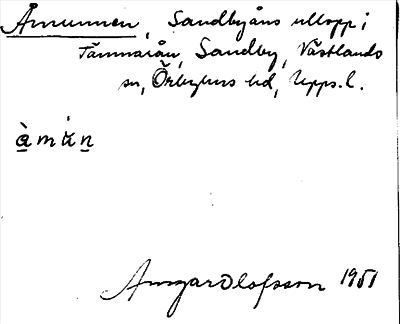 Åmunnen, Sandbyåns utlopp i
Tämnarån, Sandby, Västlands
sn, Örbyhus hd, Upps. l.
Ansgar Olofsson 1951